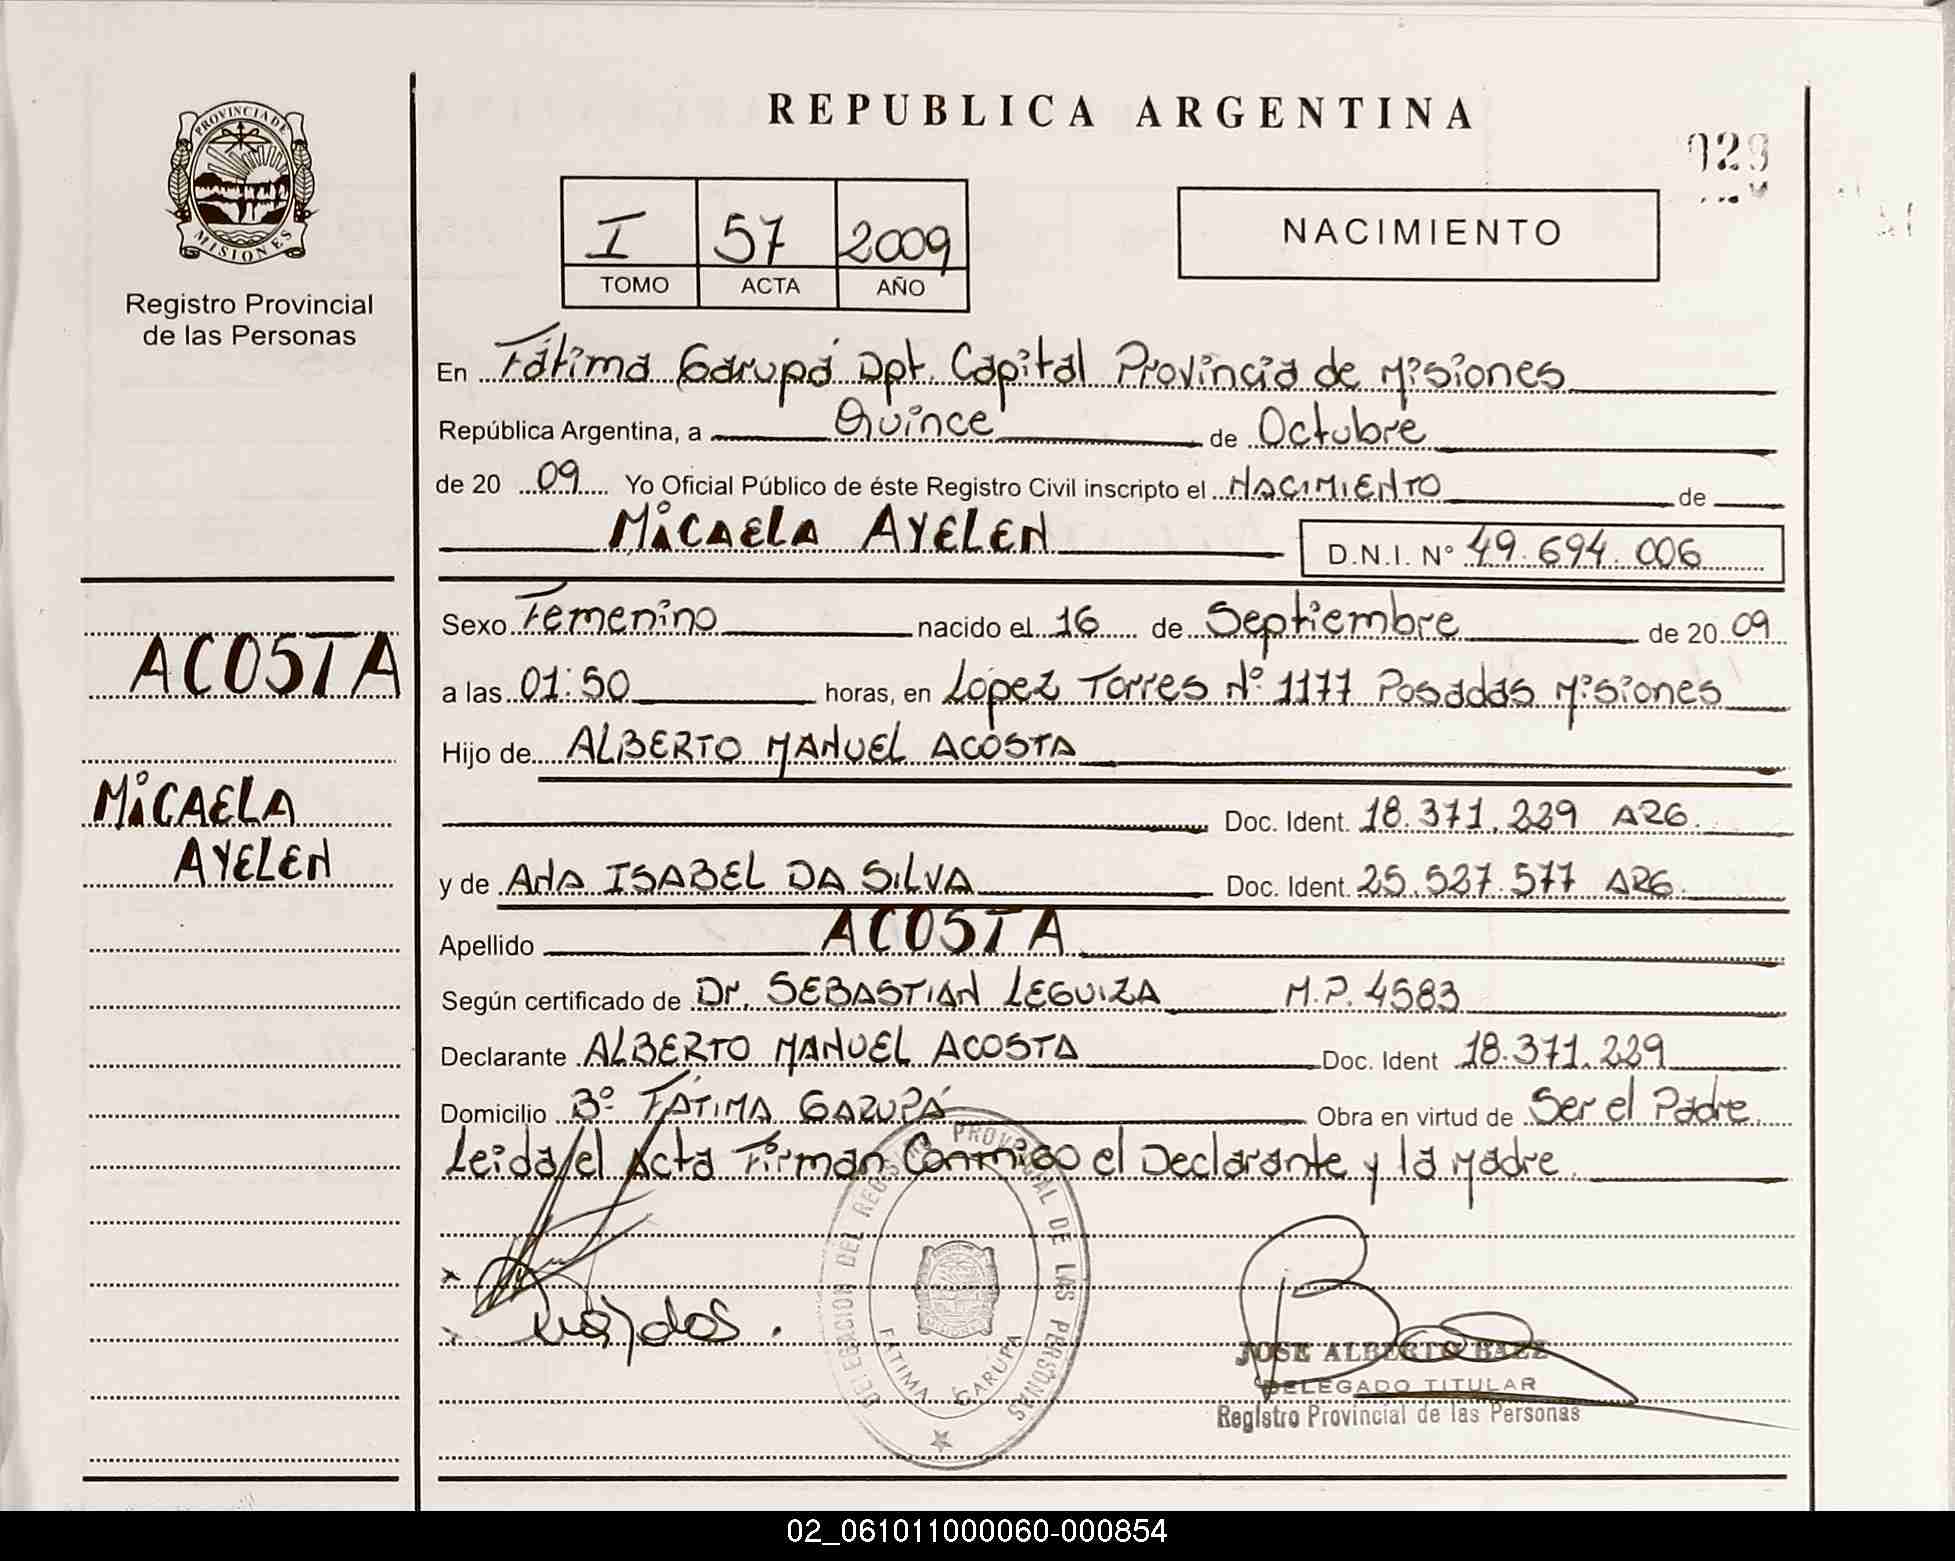 REPUBLICA ARGENTINA
029
PROVINCIA DE
MISIONES
Registro Provincial
de las Personas
I 57 2009
TOMO ACTA AÑO
NACIMIENTO
En Fátima Garupá Dpt. Capital Provincia de Misiones
República Argentina, a Quince de Octubre
de 20 09 Yo Oficial Público de éste Registro Civil inscripto el NACIMIENTO de
MICAELA AYELEN
D.N.I. Nº 49.694.006
Sexo Femenino nacido el 16 de Septiembre de 20 09
a las 01:50 horas, en López Torres Nº 1177 Posadas Misiones
Hijo de ALBERTO MANUEL ACOSTA
Doc. Ident. 18.371.229 ARG.
y de ANA ISABEL DA SILVA Doc. Ident. 25.527.577 ARG.
Apellido ACOSTA
Según certificado de Dr. SEBASTIAN LEGUIZA M.P. 4583
Declarante ALBERTO MANUEL ACOSTA Doc. Ident 18.371.229
Domicilio Bº FÁTIMA GARUPÁ Obra en virtud de Ser el Padre
Leida el Acta Firman Conmigo el Declarante y la Madre
ACOSTA
MICAELA
AYELEN
DELEGACION DEL REGISTRO PROVINCIAL DE LAS PERSONAS
FATIMA GARUPA
JOSE ALBERTO BAEZ
DELEGADO TITULAR
Registro Provincial de las Personas
02_061011000060-000854